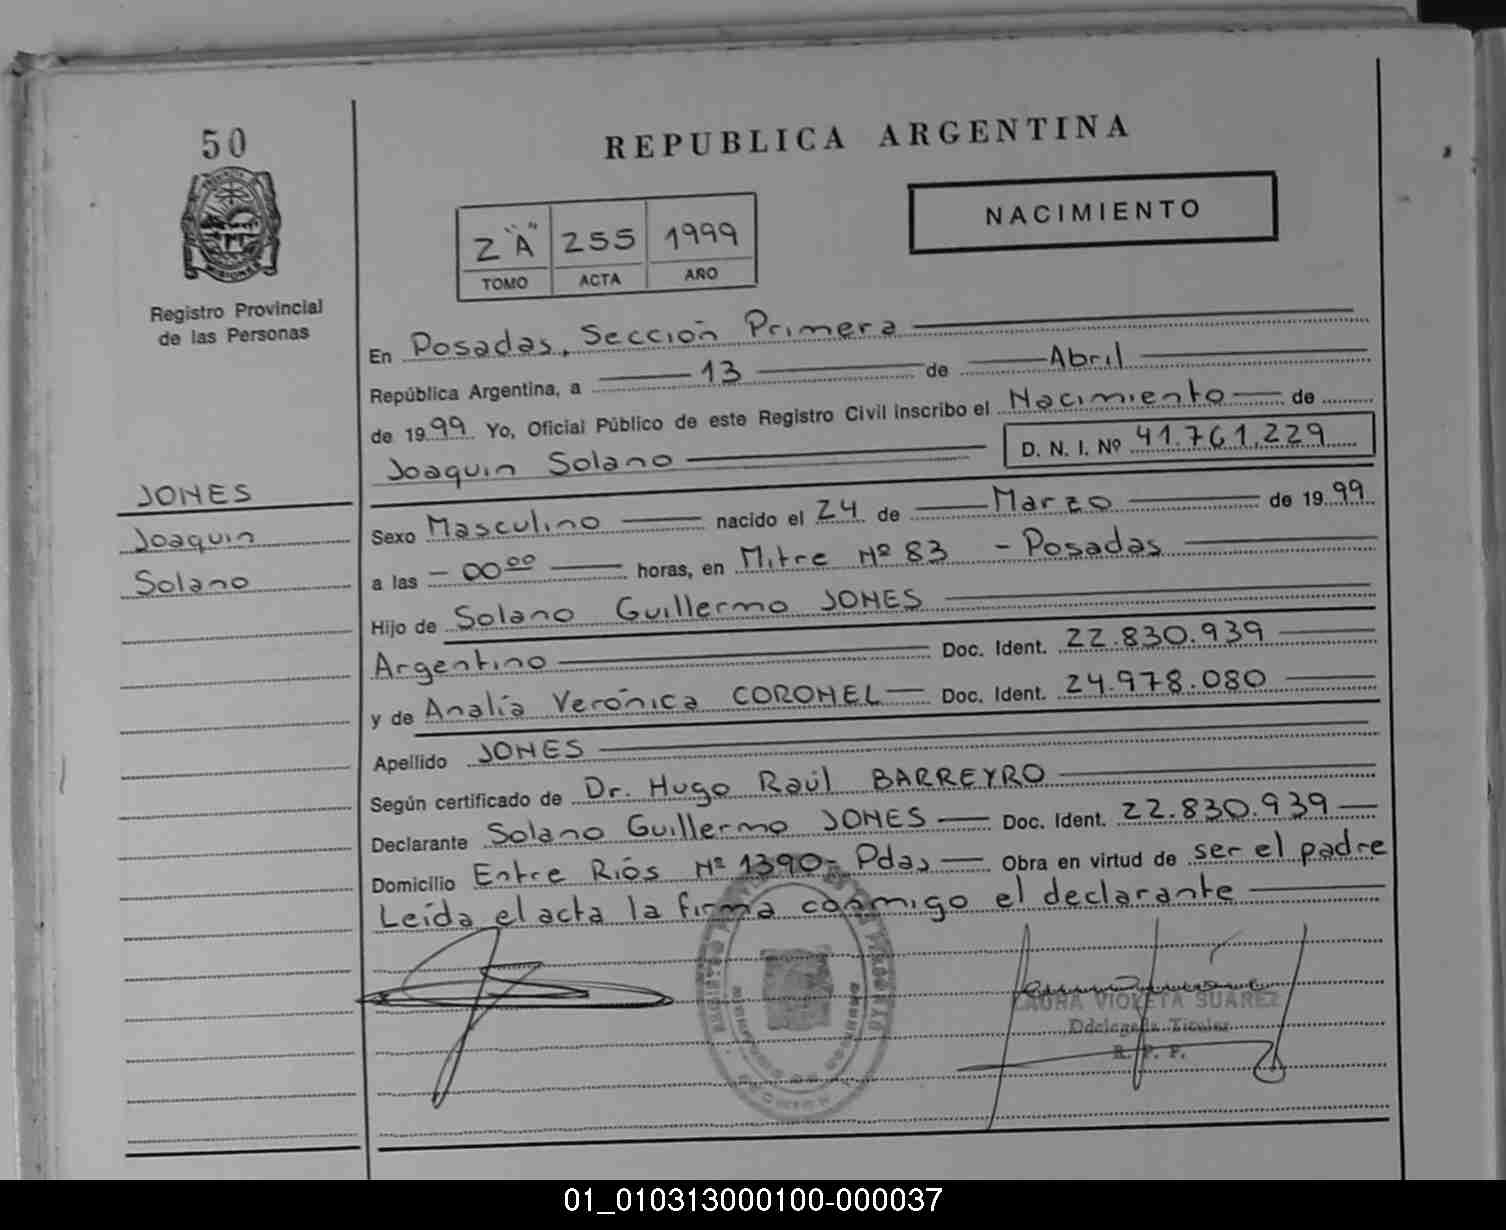 50
REPUBLICA ARGENTINA
NACIMIENTO
2 "A" 255 1999
TOMO ACTA AÑO
Registro Provincial
de las Personas
En Posadas, Sección Primera
República Argentina, a 13 de Abril
de 1999 Yo, Oficial Público de este Registro Civil inscribo el Nacimiento de
Joaquin Solano D. N. I. Nº 41.761.229
JONES
Joaquin
Solano
Sexo Masculino nacido el 24 de Marzo de 1999
a las 00⁰⁰ horas, en Mitre Nº 83 - Posadas
Hijo de Solano Guillermo JONES
Argentino Doc. Ident. 22.830.939
y de Analía Verónica CORONEL Doc. Ident. 24.978.080
Apellido JONES
Según certificado de Dr. Hugo Raúl BARREYRO
Declarante Solano Guillermo JONES Doc. Ident. 22.830.939
Domicilio Entre Ríos Nº 1390- Pdas Obra en virtud de ser el padre
Leída el acta la firma conmigo el declarante
LAURA VIOLETA SUAREZ
Ddelegada Titular
R. P. P.
01_010313000100-000037